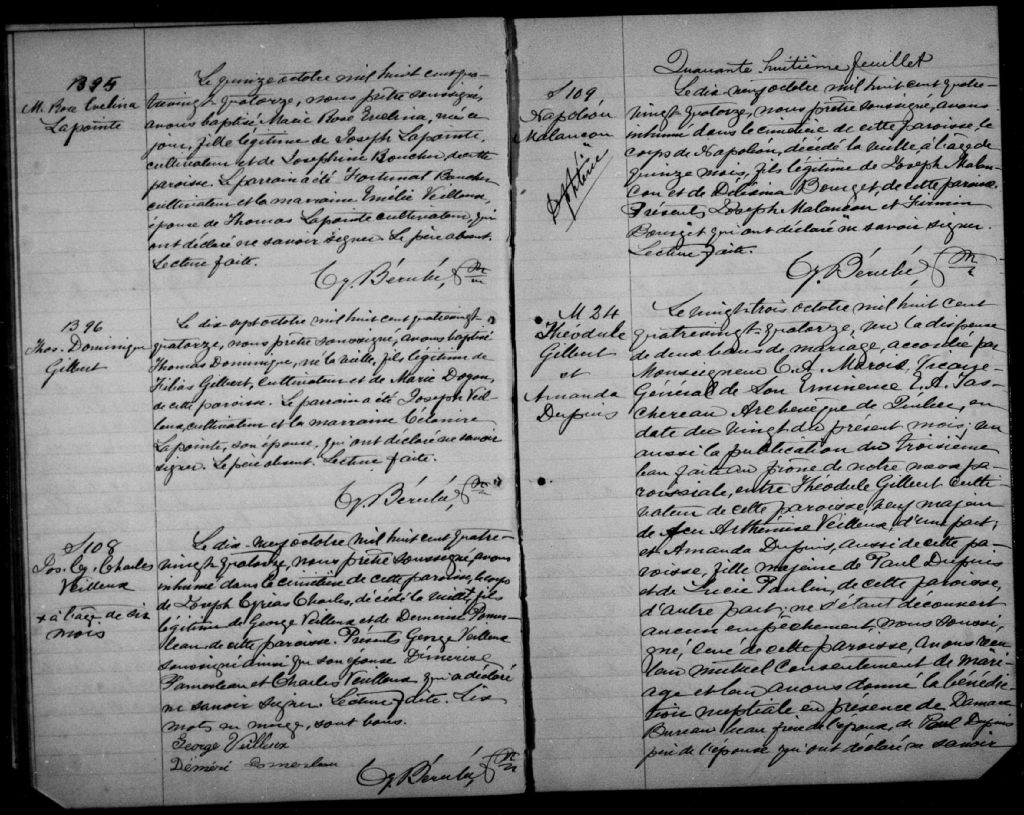 B 95
M. Rose Evelina
Lapointe
Le quinze octobre mil huit cent qua-
trevingt-quatorze, nous prêtre soussigné,
avons baptisé Marie Rose Evelina, née ce
jour, fille légitime de Joseph Lapointe,
cultivateur et de Josephine Boucher, de cette
paroisse. Le parrain a été Fortunat Boucher
cultivateur et la marraine Emélie Veilleux,
épouse de Thomas Lapointe cultivateur, qui
ont déclaré ne savoir signer. Le père absent.
Lecture faite.
Cy. Bérubé, Ptre
B 96
Thos. Dominique
Gilbert
Le dix-sept octobre mil huit cent quatrevingt-
quatorze, nous prêtre soussigné, avons baptisé
Thomas Dominique, né la veille, fils légitime de
Gilbert, cultivateur et de Marie Doyon,
de cette paroisse. Le parrain a été Joseph Veil-
leux, cultivateur et la marraine Célanire
Lapointe, son épouse, qui ont déclaré ne savoir
signer. Le père absent. Lecture faite.
Cy. Bérubé, Ptre
S 108
Jos. Cy. Charles
Veilleux
+ à l'âge de six
mois
Le dix-neuf octobre mil huit cent quatre-
vingt-quatorze, nous prêtre soussigné, avons
inhumé dans le cimetière de cette paroisse, le corps
de Joseph Cyrias Charles, décédé la veille, + fils
légitime de George Veilleux et de Demerise Pomer-
leau, de cette paroisse. Présents George Veilleux
soussigné ainsi que son épouse Démerise
Pomerleau et Charles Veilleux qui a déclaré
ne savoir signer. Lecture faite. Six
mots en marge, sont bons.
George Veilleux
Démeri Pomerleau
Cy. Bérubé, Ptre
Quarante-huitième feuillet
S 109
Napoléon
Malançon
Le dix-neuf octobre mil huit cent quatre-
vingt-quatorze, nous prêtre soussigné, avons
inhumé dans le cimetière de cette paroisse, le
corps de Napoléon, décédé la veille, à l'âge de
quinze mois, fils légitime de Joseph Malan-
çon et de Délésina Bourget, de cette paroisse.
Présents Joseph Malançon et Firmin
Bourget qui ont déclaré ne savoir signer.
Lecture faite.
Cy. Bérubé, Ptre
M 24
Théodule
Gilbert
et
Amanda
Dupuis
Le vingt-trois octobre mil huit cent
quatrevingt-quatorze, vu la dispense
de deux bans de mariage, accordée par
Monseigneur C. A. Marois, Vicaire-
Général de Son Eminence E. A. Tas-
chereau Archevêque de Québec, en
date du vingt du présent mois; vu
aussi la publication du troisième
ban faite au prône de notre messe pa-
roissiale, entre Théodule Gilbert culti-
vateur de cette paroisse, veuf majeur
de feu Arthémise Veilleux d'une part;
et Amanda Dupuis, aussi de cette pa-
roisse, fille majeure de Paul Dupuis
et de Lucie Poulin, de cette paroisse,
d'autre part; ne s'étant découvert
aucun empêchement, nous soussi-
gné, Curé de cette paroisse, avons reçu
leur mutuel consentement de mari-
age et leur avons donné la bénédic-
tion nuptiale en présence de Damase
Bureau beau frère de l'époux, de Paul Dupuis
père de l'épouse qui ont déclaré ne savoir